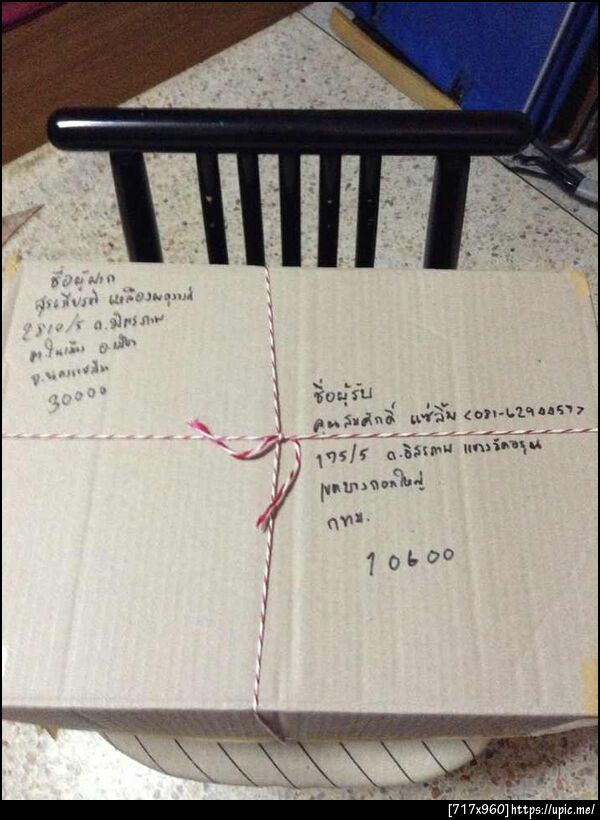 ชื่อผู้ฝาก
สุรเกียรติ
2510/5 ถ.มิตรภาพ
ต.ในเมือง อ.เมือง
จ.นครราชสีมา
30000
ชื่อผู้รับ
คุณสมศักดิ์ แซ่ลิ้ม
175/5 ถ.อิสรภาพ แขวงวัดอรุณ
เขตบางกอกใหญ่
กทม.
10600
[717x960]https://upic.me/